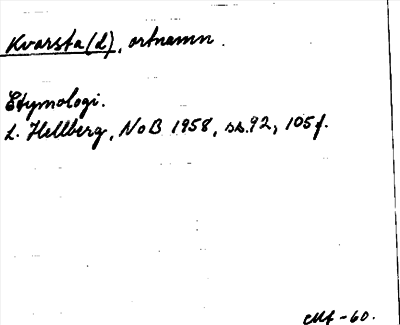 Kvarsta(d), ortnamn.
Etymologi.
L. Hellberg, NoB 1958, ss.92, 105f.
Mf -60.